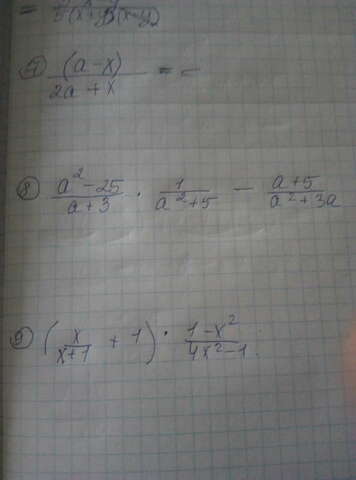 = 5(x+y)(x-y)
(a-x) / 2a+x = -
8) (a²-25)/(a+3) · 1/(a²+5) - (a+5)/(a²+3a)
9) (x/(x+1) + 1) · (1-x²)/(4x²-1);